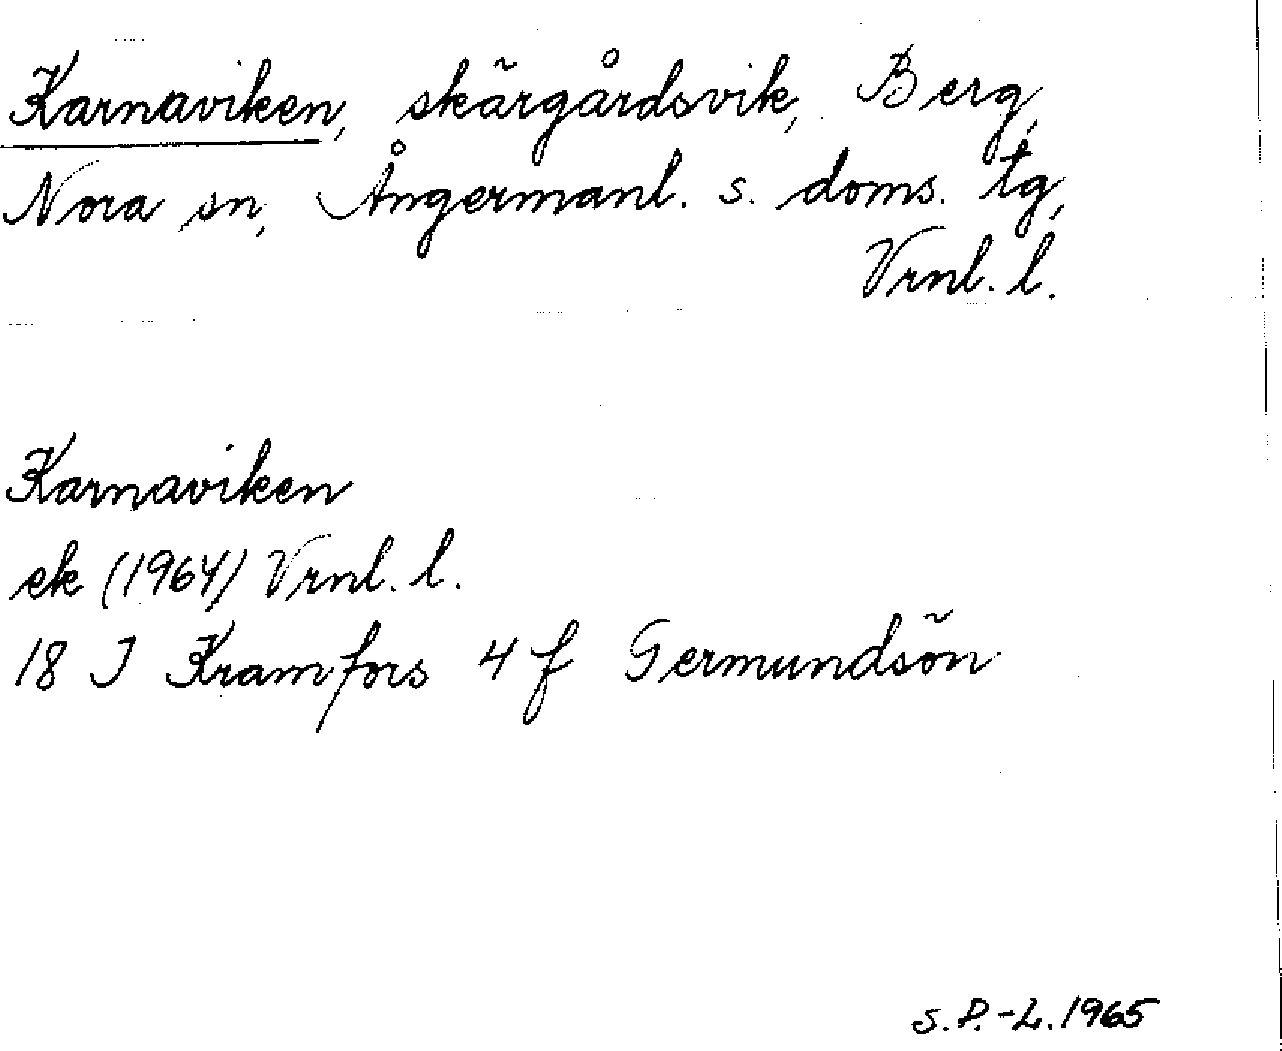 Karnaviken, skärgårdsvik, Berg,
Nora sn, Ångermanl. s. doms. tg,
Vrnl. l.
Karnaviken
ek (1964) Vrnl. l.
18 I Kramfors 4 f Germundsön
S.P.-L. 1965